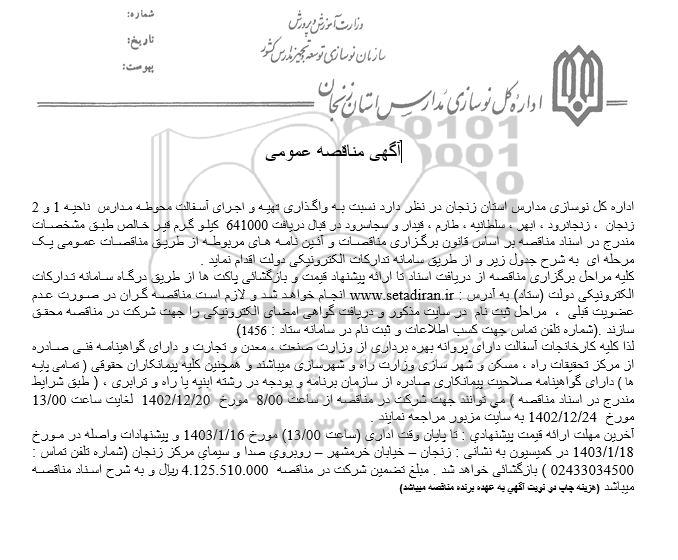 شماره:
تاریخ:
پیوست:
وزارت آموزش و پرورش
سازمان نوسازی توسعه تجهیز مدارس کشور
اداره کل نوسازی مدارس استان زنجان
آگهی مناقصه عمومی
اداره کل نوسازی مدارس استان زنجان در نظر دارد نسبت به واگذاری تهیه و اجرای آسفالت محوطه مدارس ناحیه 1 و 2
زنجان ، زنجانرود ، ابهر ، سلطانیه ، طارم ، قیدار و سجاسرود در قبال دریافت 641000 کیلو گرم قیر خالص طبق مشخصات
مندرج در اسناد مناقصه بر اساس قانون برگزاری مناقصات و آئین نامه های مربوطه از طریق مناقصات عمومی یک
مرحله ای به شرح جدول زیر و از طریق سامانه تدارکات الکترونیکی دولت اقدام نماید .
کلیه مراحل برگزاری مناقصه از دریافت اسناد تا ارائه پیشنهاد قیمت و بازگشائی پاکت ها از طریق درگاه سامانه تدارکات
الکترونیکی دولت (ستاد) به آدرس : www.setadiran.ir انجام خواهد شد و لازم است مناقصه گران در صورت عدم
عضویت قبلی ، مراحل ثبت نام در سایت مذکور و دریافت گواهی امضای الکترونیکی را جهت شرکت در مناقصه محقق
سازند .(شماره تلفن تماس جهت کسب اطلاعات و ثبت نام در سامانه ستاد : 1456)
لذا کلیه کارخانجات آسفالت دارای پروانه بهره برداری از وزارت صنعت ، معدن و تجارت و دارای گواهینامه فنی صادره
از مرکز تحقیقات راه ، مسکن و شهر سازی وزارت راه و شهرسازی میباشند و همچنین کلیه پیمانکاران حقوقی ( تمامی پایه
ها ) دارای گواهینامه صلاحیت پیمانکاری صادره از سازمان برنامه و بودجه در رشته ابنیه یا راه و ترابری ، ( طبق شرایط
مندرج در اسناد مناقصه ) می توانند جهت شرکت در مناقصه از ساعت 8/00 مورخ 1402/12/20 لغایت ساعت 13/00
مورخ 1402/12/24 به سایت مزبور مراجعه نمایند.
آخرین مهلت ارائه قیمت پیشنهادی : تا پایان وقت اداری (ساعت 13/00) مورخ 1403/1/16 و پیشنهادات واصله در مورخ
1403/1/18 در کمیسیون به نشانی : زنجان – خیابان خرمشهر – روبروی صدا و سیمای مرکز زنجان (شماره تلفن تماس :
02433034500 ) بازگشائی خواهد شد . مبلغ تضمین شرکت در مناقصه 4.125.510.000 ریال و به شرح اسناد مناقصه
میباشد (هزینه چاپ دو نوبت آگهی به عهده برنده مناقصه میباشد)